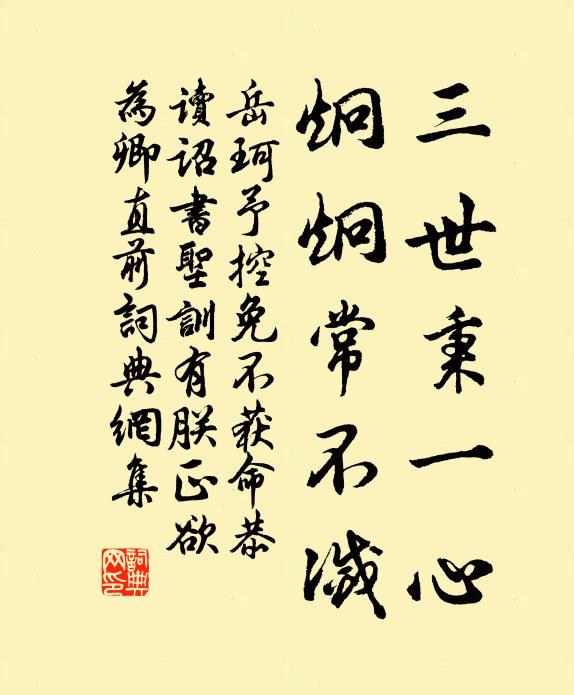 三世秉一心
炯炯常不滅
岳珂予控免不获命恭
讀詔書聖訓有朕正欲
為卿直前詞典網集
詞典网印